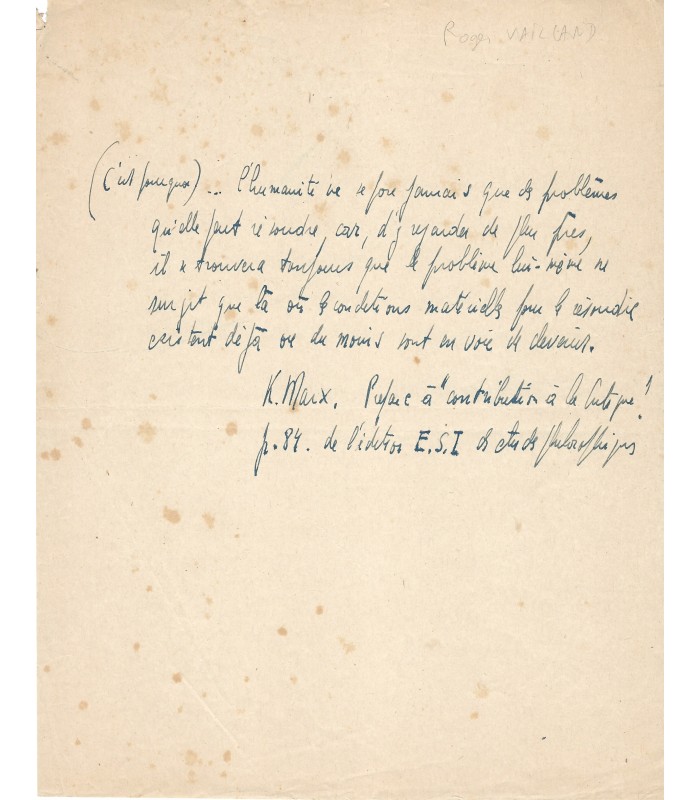 Roger VAILLAND
(C'est pourquoi) ... l'humanité ne se pose jamais que des problèmes
qu'elle peut résoudre, car, d'y regarder de plus près,
il se trouvera toujours que le problème lui-même ne
surgit que là où les conditions matérielles pour le résoudre
existent déjà ou du moins sont en voie de devenir.
K. Marx. Préface à "contribution à la Critique"
p. 84. de l'édition E.S.I des études philosophiques